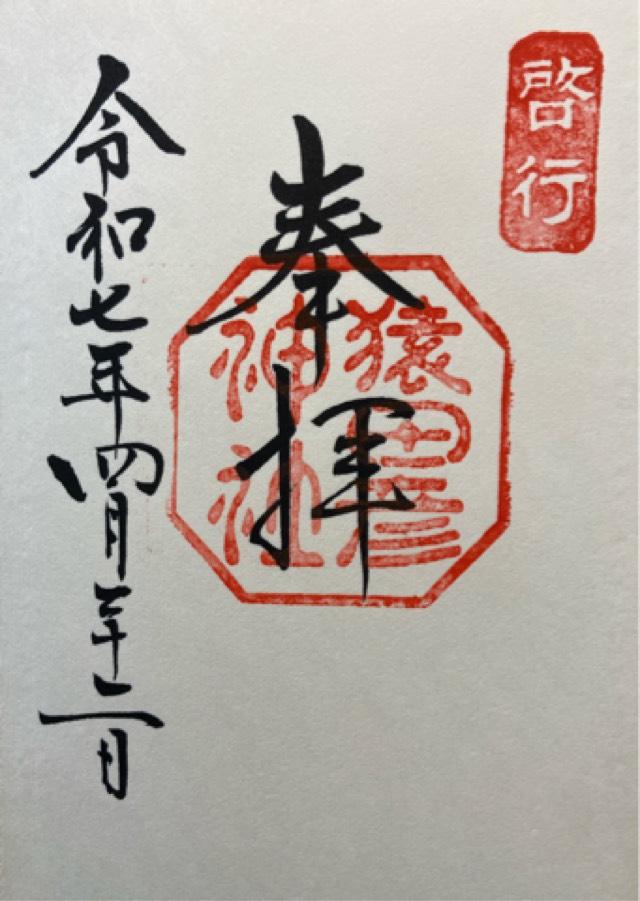 啓行
奉拝
猿田彦
神社
令和七年四月二十二日